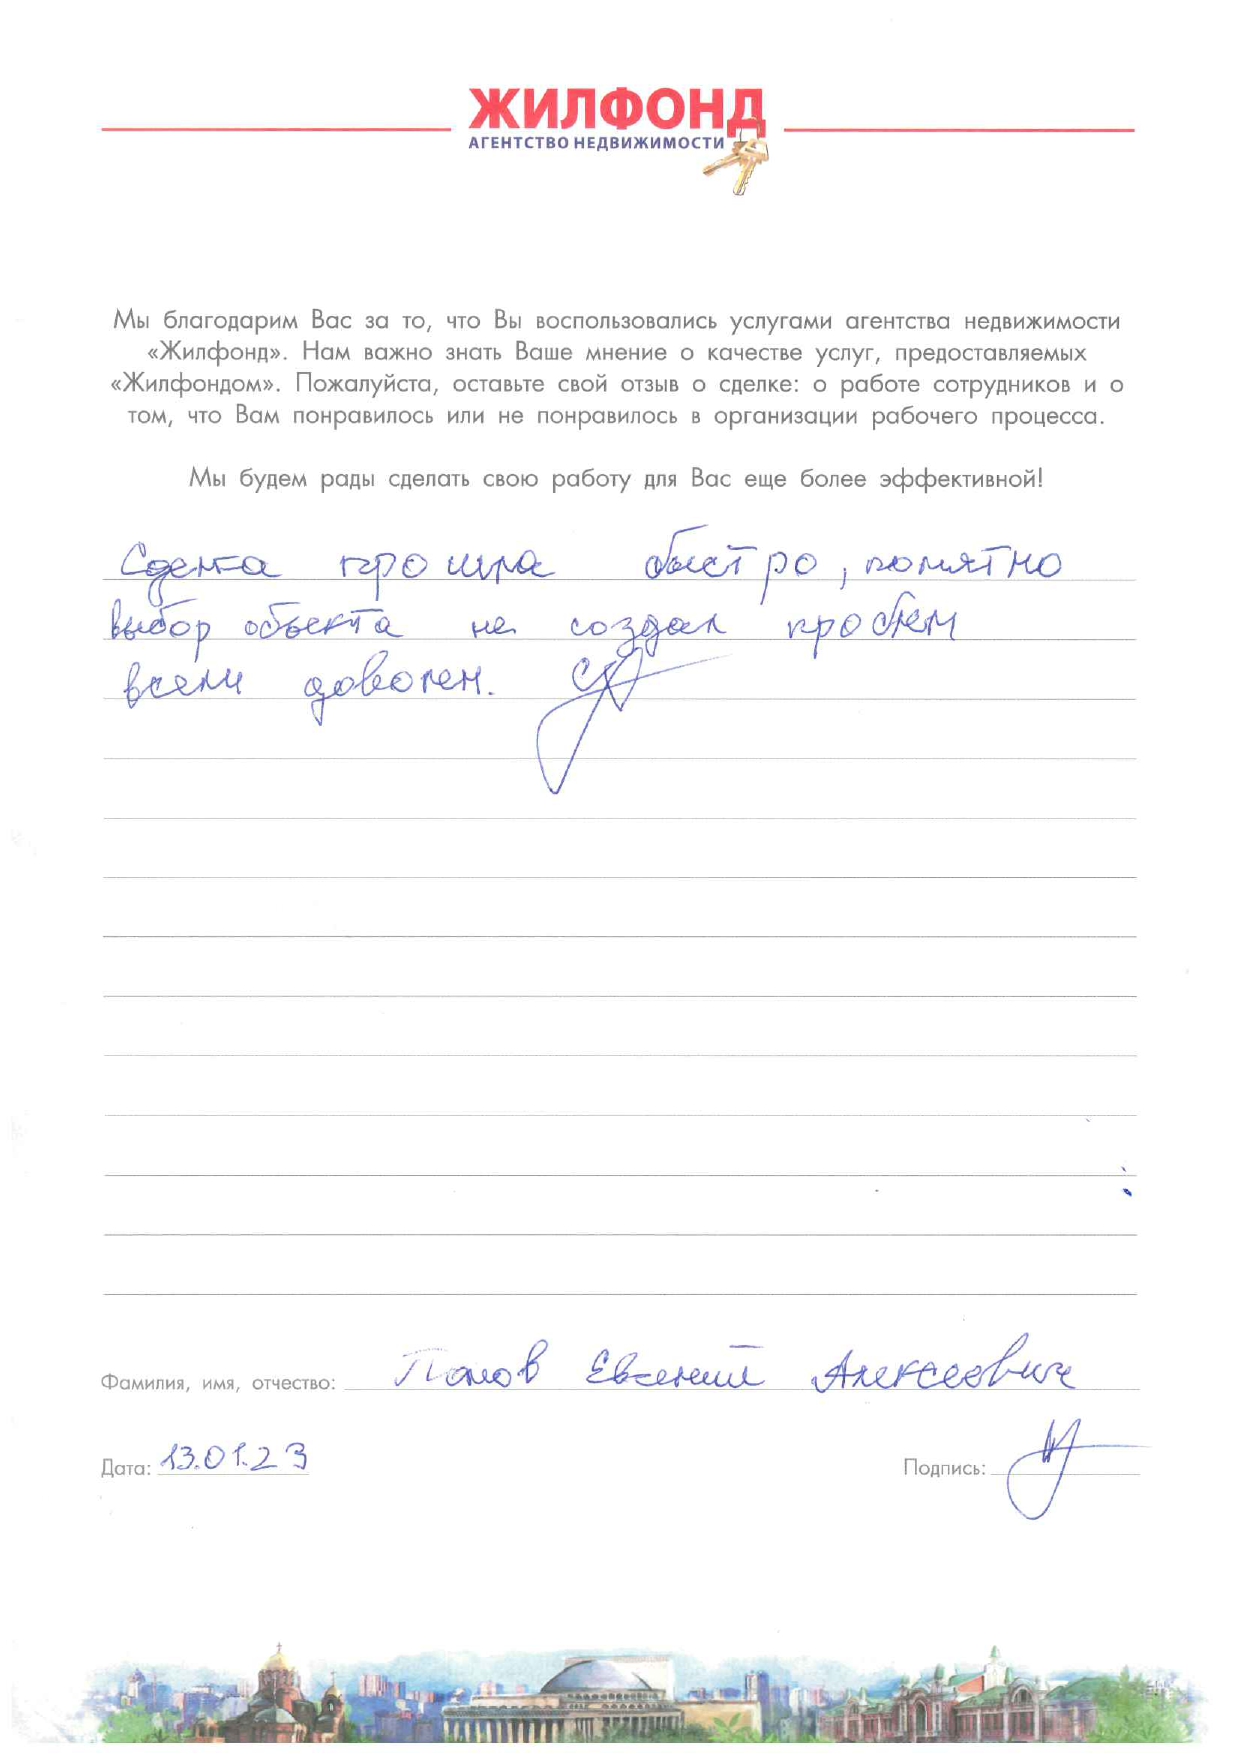 ЖИЛФОНД
АГЕНТСТВО НЕДВИЖИМОСТИ
Мы благодарим Вас за то, что Вы воспользовались услугами агентства недвижимости
«Жилфонд». Нам важно знать Ваше мнение о качестве услуг, предоставляемых
«Жилфондом». Пожалуйста, оставьте свой отзыв о сделке: о работе сотрудников и о
том, что Вам понравилось или не понравилось в организации рабочего процесса.
Мы будем рады сделать свою работу для Вас еще более эффективной!
Сделка прошла быстро, понятно
выбор объекта не создал проблем
всем доволен.
Фамилия, имя, отчество: Евгений Алексеевич
Дата: 13.01.23 Подпись: